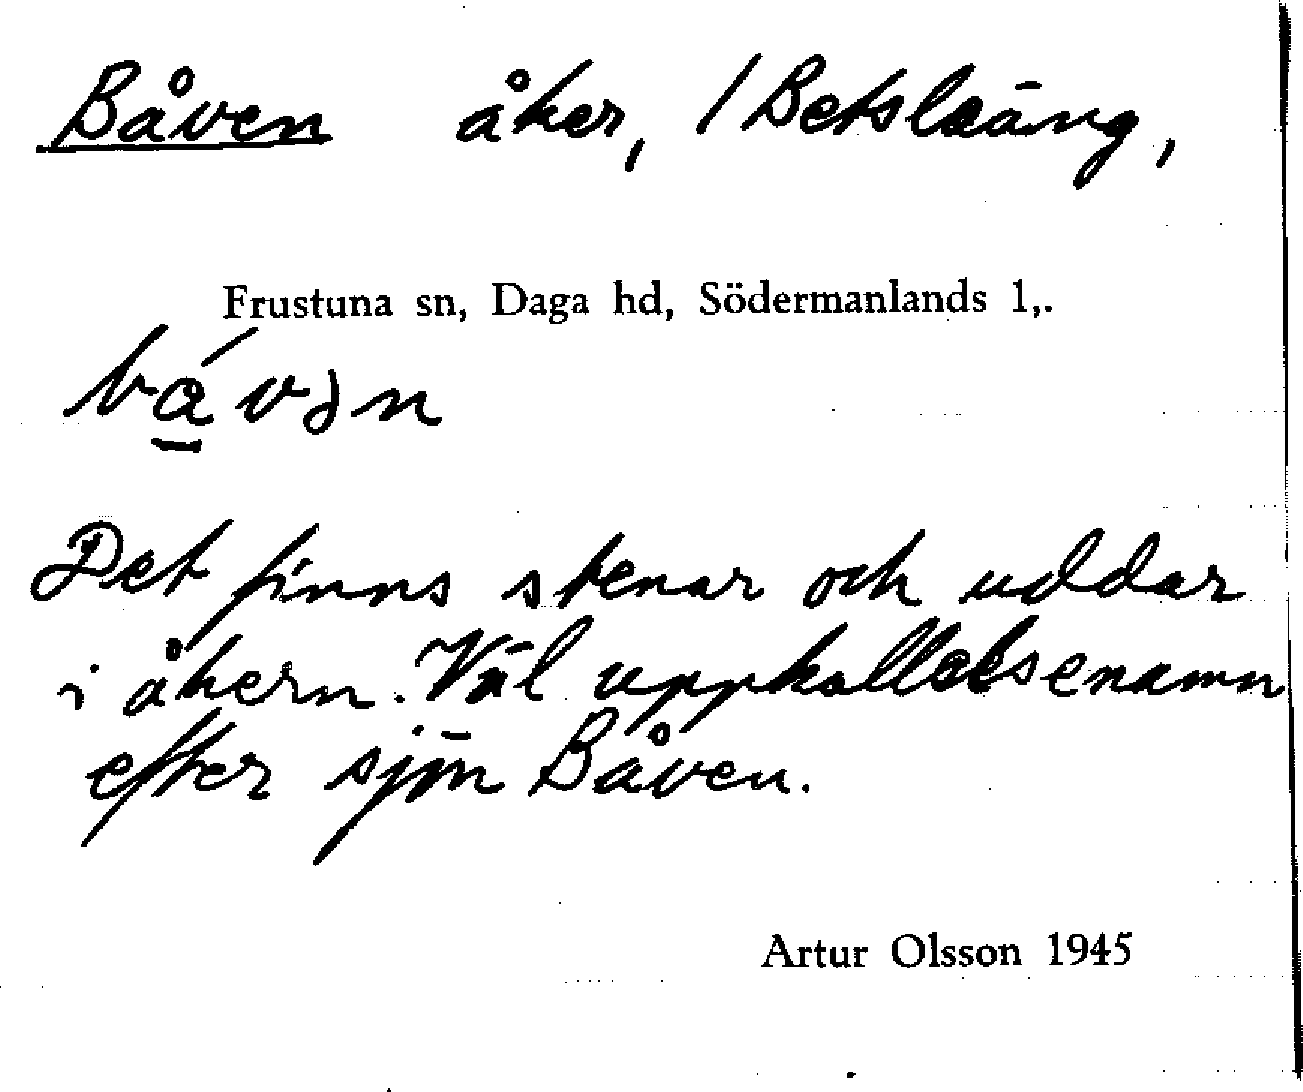 Båven åker, / Betsleäng,
Frustuna sn, Daga hd, Södermanlands l,.
bávən
Det finns stenar och uddar
i åkern. Väl uppkallelsenamn
efter sjön Båven.
Artur Olsson 1945